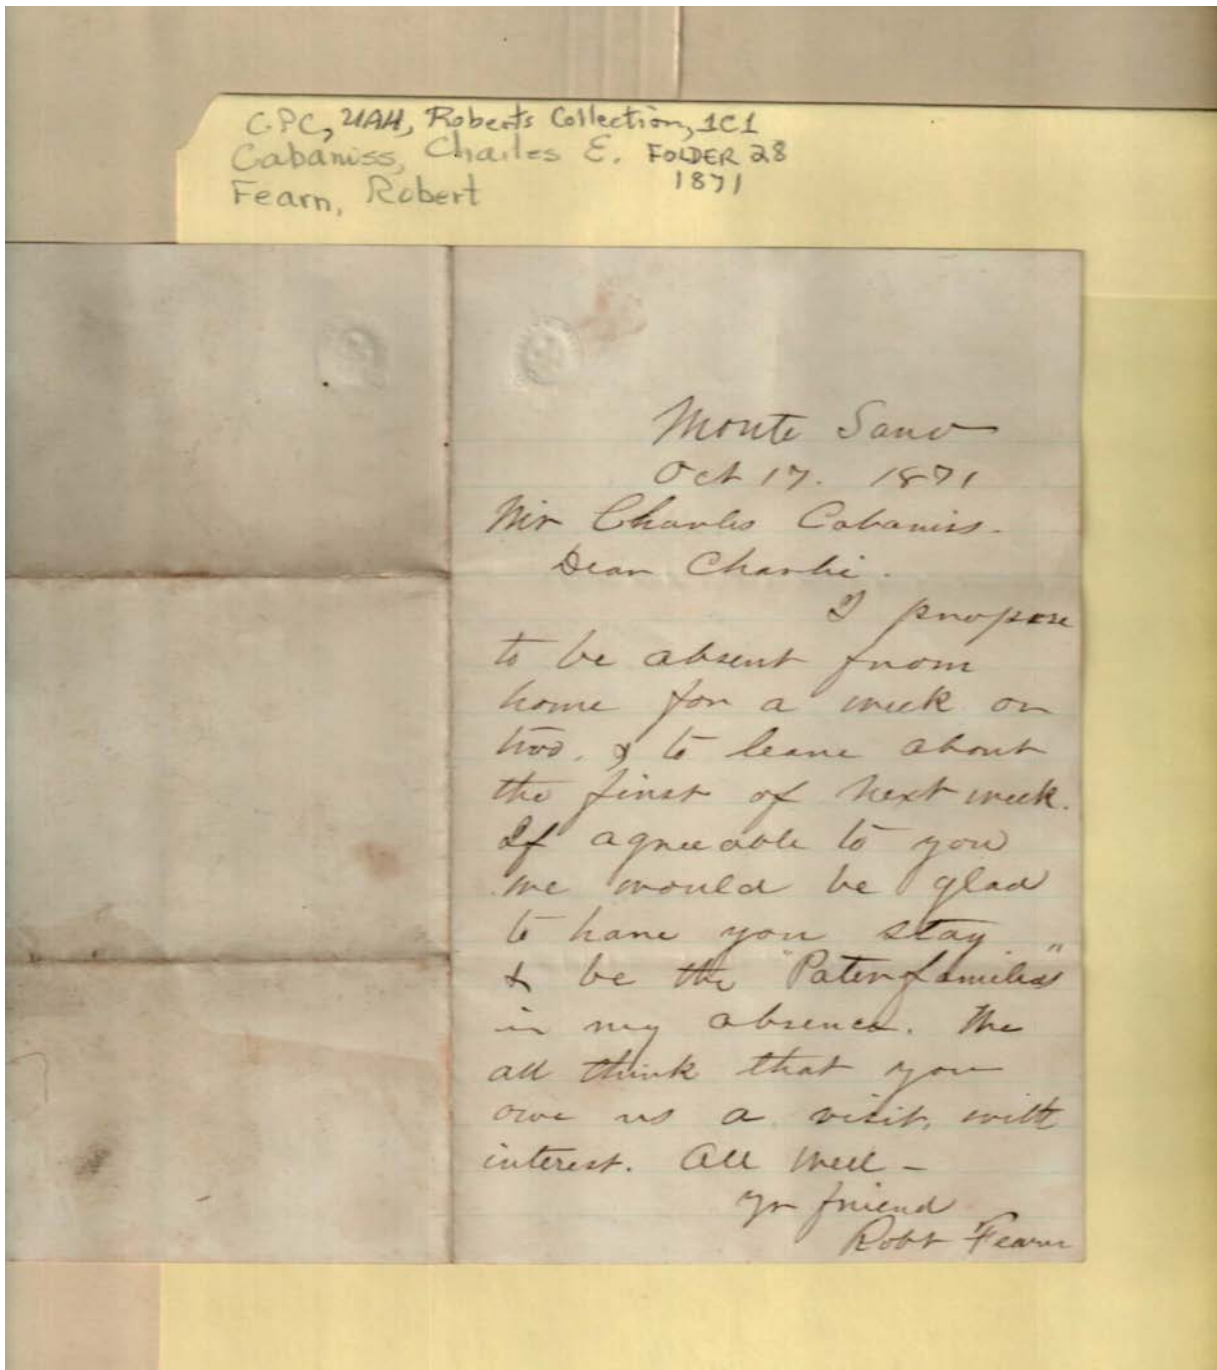 CPC, UAH, Roberts Collection, 1C1
Cabaniss, Charles E. FOLDER 28
Fearn, Robert 1871
Monte Sano
Oct 17. 1871
Mr Charles Cabaniss.
Dear Charlie.
I propose
to be absent from
home for a week or
two. & to leave about
the first of next week.
If agreeable to you
we would be glad
to have you stay
& be the "Paterfamilias"
in my absence. We
all think that you
owe us a visit, with
interest. All well –
yr friend
Robt Fearn